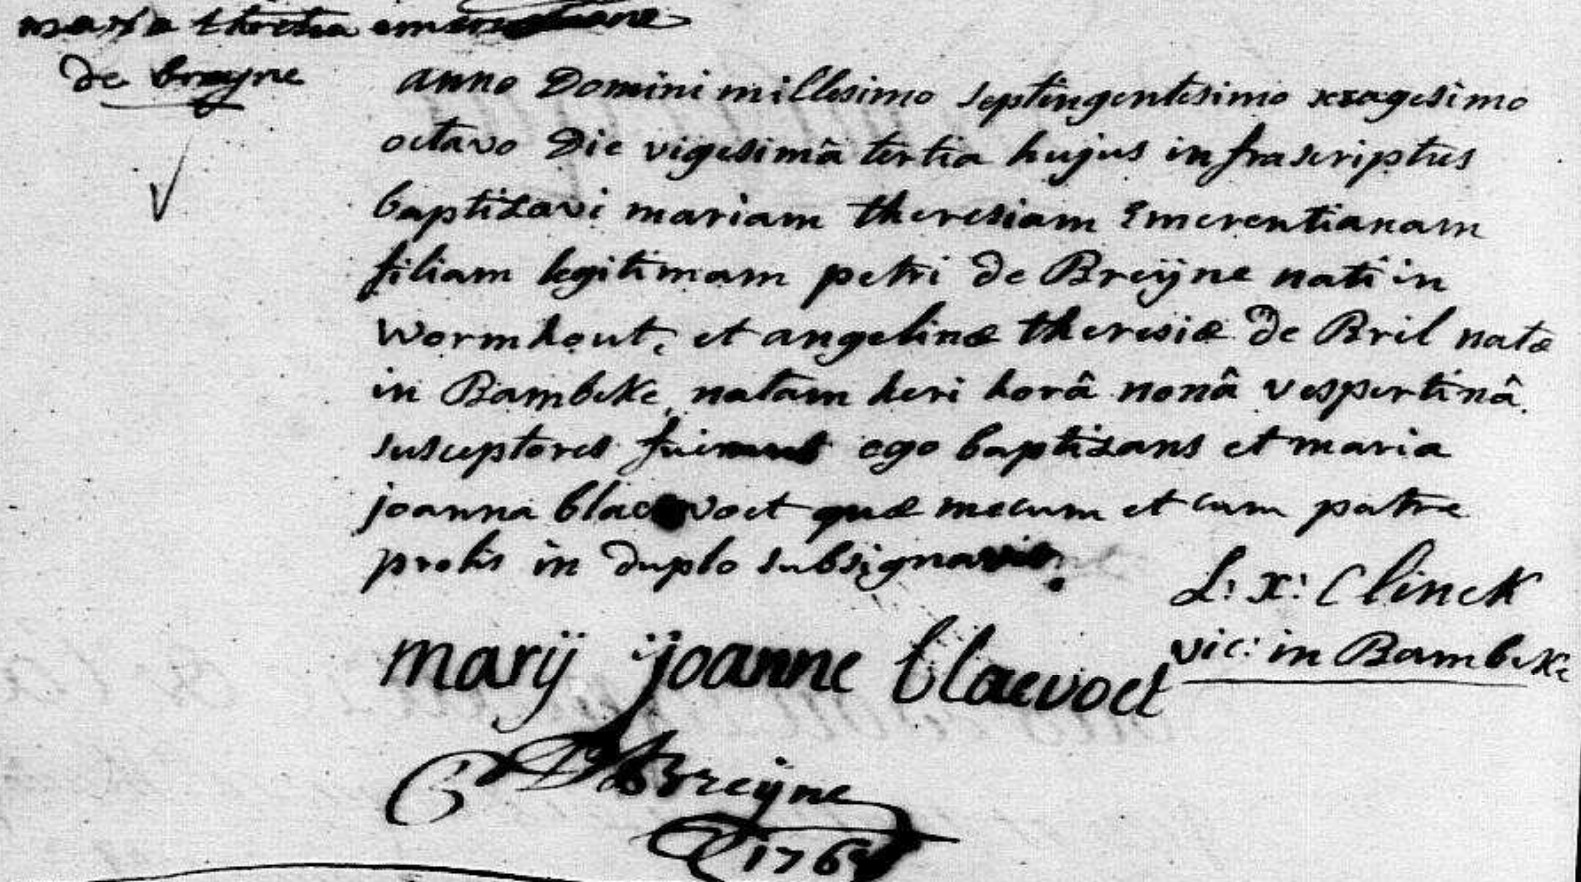 maria thresia emerentiane
de breyne
anno Domini millesimo septingentesimo xragesimo
octavo Die vigesimâ tertia hujus infrascriptus
baptizavi mariam theresiam Emerentianam
filiam legitimam petri de Breÿne nati in
wormhout, et angelinæ theresiæ de Bril natæ
in Bambeke, natam heri horâ nonâ vespertinâ.
susceptores fuerunt ego baptizans et maria
joanna blaevoet quæ mecum et cum patre
prolis in duplo subsignavit.
L: x: Clinck
vic: in Bambeke
marÿ joanne blaevoet
Breÿne